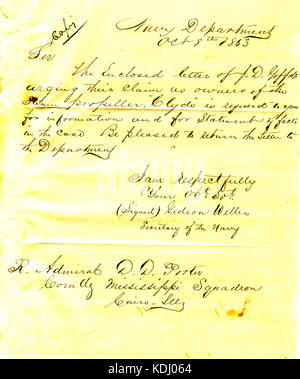 Copy
Navy Department
Oct 8th 1863
Sir
The Enclosed letter of J. D.
urging their claim as owners of the
Propeller, Clyde is referred to you
for information and for Statement of facts
in the Case. Be pleased to return the letter to
the Department
I am respectfully
Your Obt Svt.
(Signed) Gideon Welles
Secretary of the Navy
R. Admiral D. D. Porter
Comdg Mississippi Squadron
Cairo Ills
alamy
Image ID: KDJ064
www.alamy.com